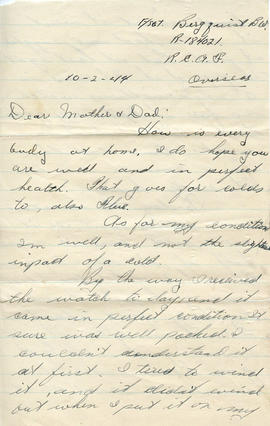 F/Sgt. Bergquist B.W.
R-184021.
R.C.A.F.
Overseas
10-2-44
Dear Mother & Dad;
How is every
body at home, I do hope you
are well and in perfect
health. That goes for colds
to, also flue.
As for my condition
Im well, and not the slightest
inpact of a cold.
By the way I received
the watch to-day, and it
came in perfect condition. It
sure was well packed. I
couldn't understand it
at first. I tired to wind
it, and it didn't wind
but when I put it on my